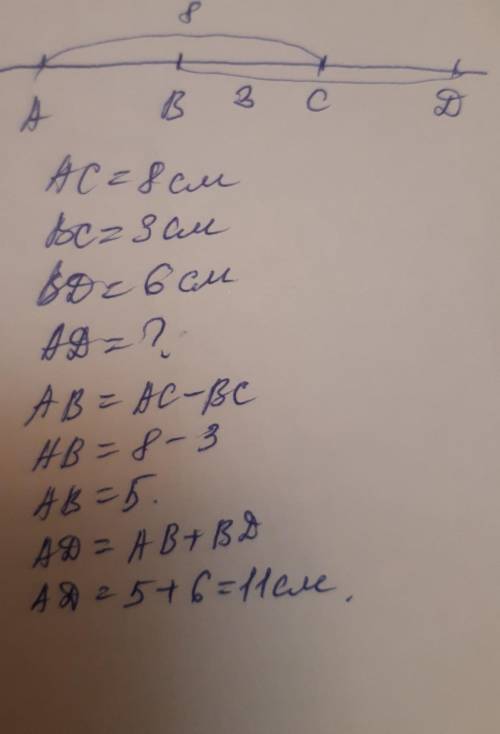 8
A B 3 C D
AC = 8 см
BC = 3 см
BD = 6 см
AD = ?
AB = AC - BC
AB = 8 - 3
AB = 5.
AD = AB + BD
AD = 5 + 6 = 11 см.